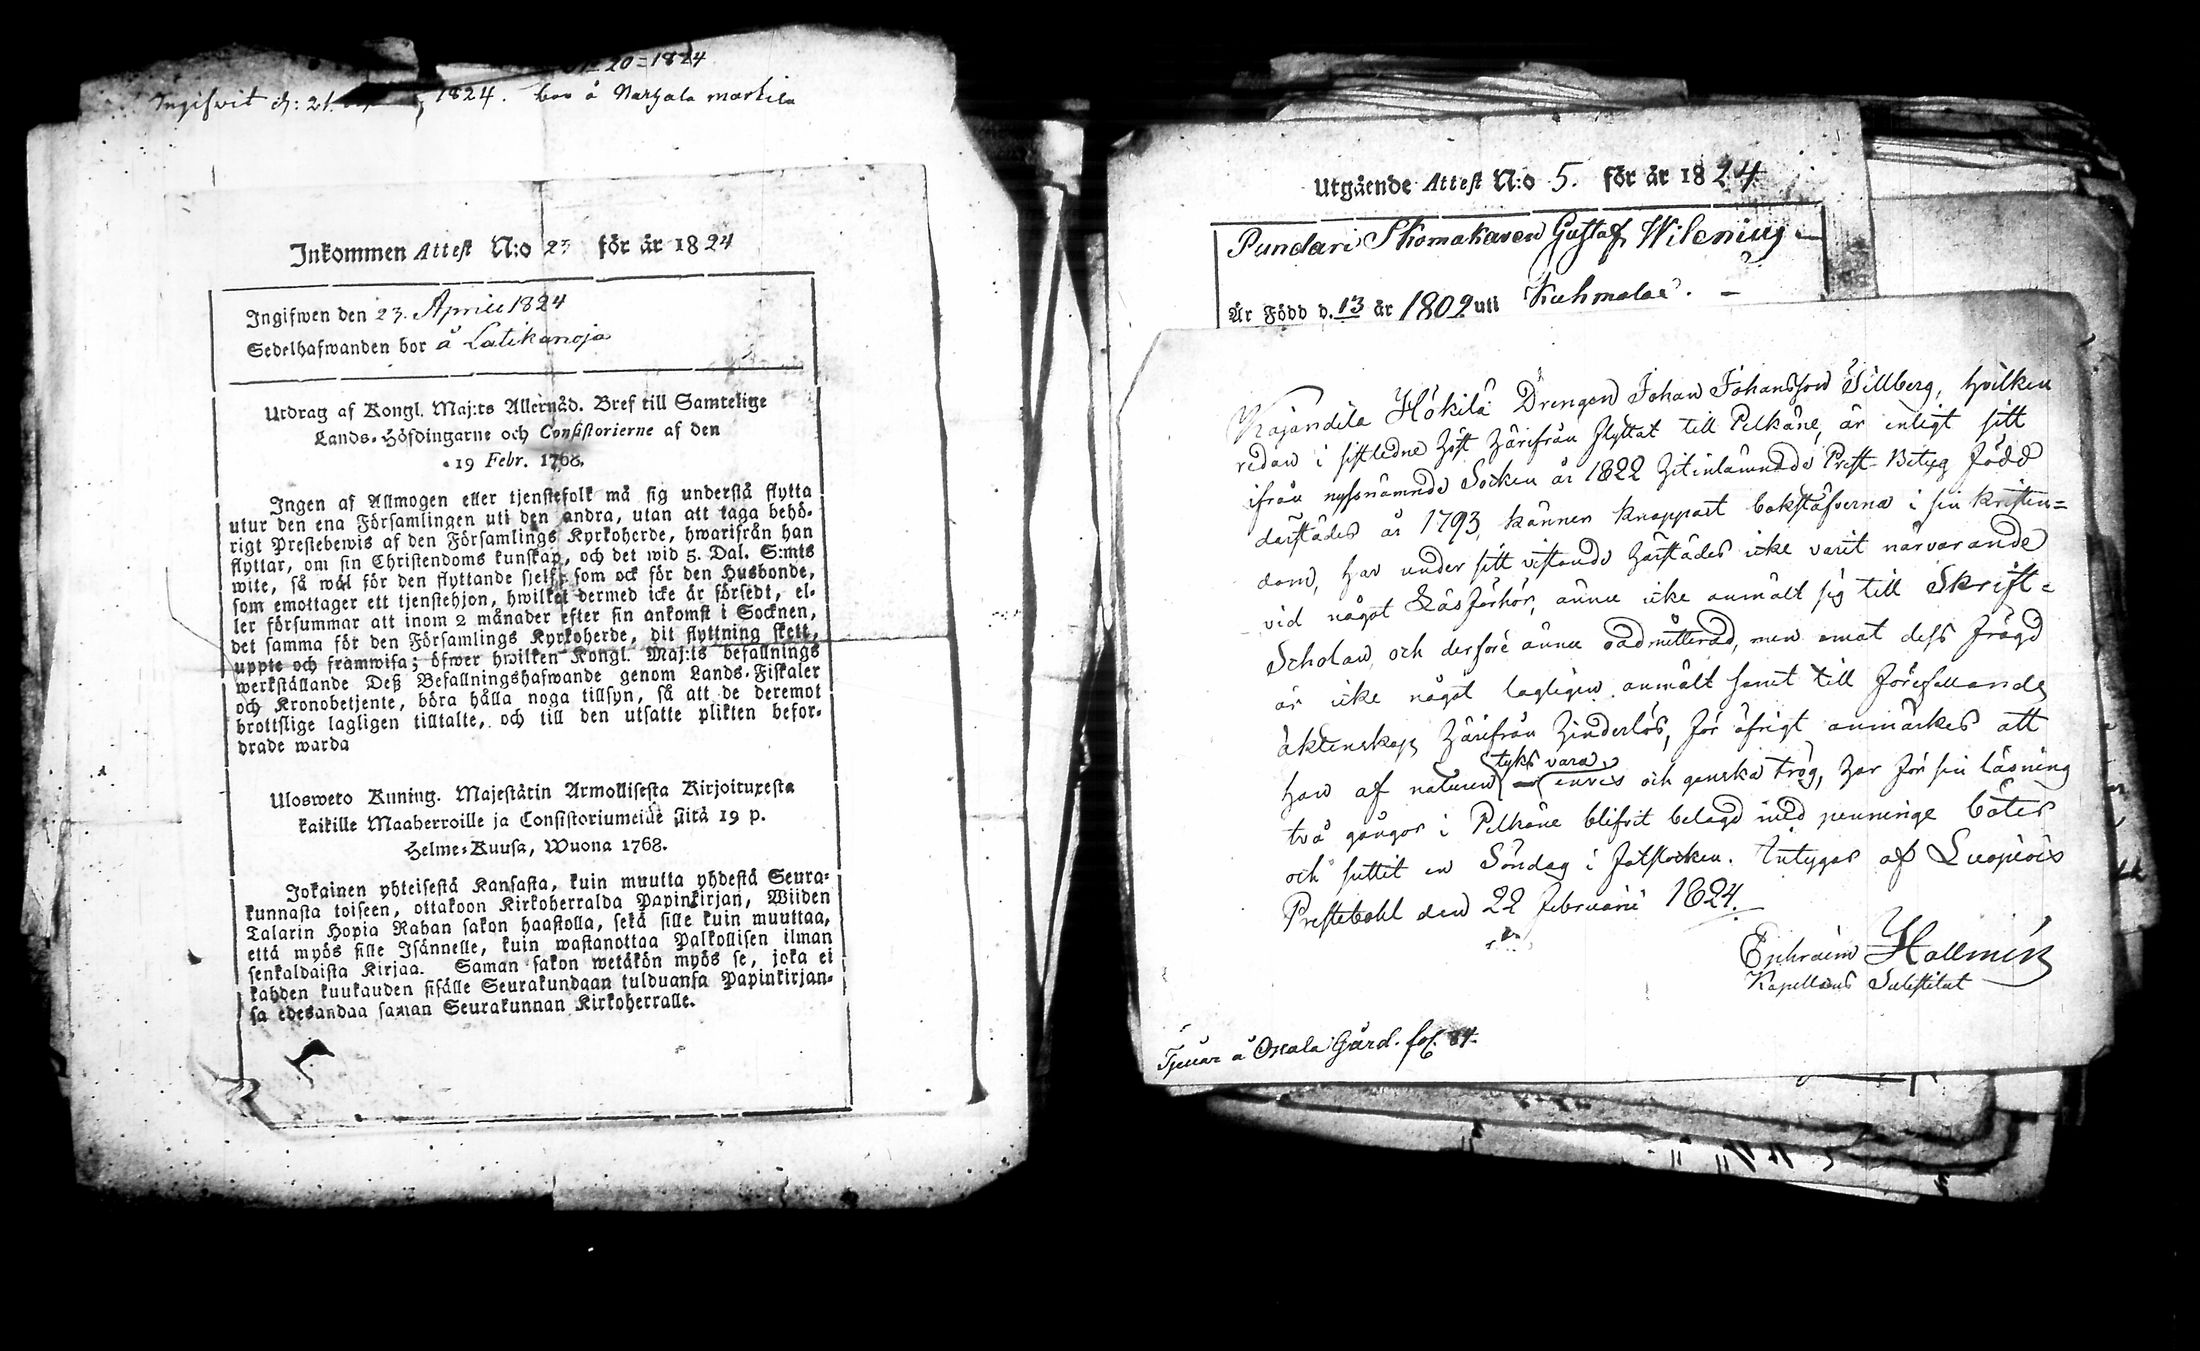 N:o 20 = 1824
Ingifvit d: 21. 1824. bor å Nargala markila
Inkommen Attest N:o 23 för år 1824
Ingifwen den 23. Aprill 1824
Sedelhafwanden bor å Latikanoja
Utdrag af Kongl. Maj:ts Allernåd. Bref till Samtelige
Lands-Höfdingarne och Consistorierne af den
19 Febr. 1768.
Ingen af Allmogen eller tjenstefolk må sig understå flytta
utur den ena Församlingen uti den andra, utan att taga behö-
rigt Prestebewis af den Församlings Kyrkoherde, hwarifrån han
flyttar, om sin Christendoms kunskap, och det wid 5. Dal. S:mts
wite, så wäl för den flyttande sjelf, som ock för den Husbonde,
som emottager ett tjenstehjon, hwilket dermed icke är försedt, el-
ler försummar att inom 2 månader efter sin ankomst i Socknen,
det samma för den Församlings Kyrkoherde, dit flyttning skett,
uppte och framwisa; öfwer hwilken Kongl. Maj:ts befallnings
werkställande Deß Befallningshafwande genom Lands-Fiskaler
och Kronobetjente, böra hålla noga tillsyn, så att de deremot
brottslige lagligen tilltalte, och till den utsatte plikten befor-
drade warda
Ulosweto Kuning. Majestätin Armollisesta Kirjoituxesta
kaikille Maaherroille ja Consistoriumeille siitä 19 p.
Helme-Kuusa, Wuona 1768.
Jokainen yhteisestä Kansasta, kuin muutta yhdestä Seura-
kunnasta toiseen, ottakoon Kirkoherralda Papinkirjan, Wiiden
Talarin Hopia Rahan sakon haastolla, sekä sille kuin muuttaa,
että myös sille Isännelle, kuin wastanottaa Palkollisen ilman
senkaldaista Kirjaa. Saman sakon wetäkön myös se, joka ei
kahden kuukauden sisälle Seurakundaan tulduansa Papinkirjan-
sa edesandaa saman Seurakunnan Kirkoherralle.
Utgående Attest N:o 5. för år 1824
Pundari Skomakaren Gustaf Wilenius
Är Född d. 13 år 1802 uti Kuhmalax.
Kajandila Hökilä Drengen Johan Johansson Sillberg, hvilken
redan i sistledne höst härifrån flyttat till Pelkäne, är enligt sitt
ifrån nyssnämnde Socken år 1822 hitinlämnade Prest-Betyg född
därstädes år 1793, känner knappast bokstäfverna i sin kristen=
dom, har under sitt vistande härstädes icke varit närvarande
vid något Läsförhör, ännu icke anmält sig till Skrift=
Scholan, och derföre ännu oadmitterad, men emot dess frägd
är icke något lagligen anmält samt till förefallande
äktenskap härifrån hinderlös, för öfrigt anmärkes att
han af naturen tyks vara envis och ganska trög, har för sin läsning
två gångor i Pelkäne blifvit belagd med penninge böter
och suttit en Söndag i fotstocken. Intygar af Luopiois
Prestebohl den 22 Februarii 1824.
Ephraim Hallmén
Kapellans Substitut
Tjenar å Onala Gård. fol. 84.